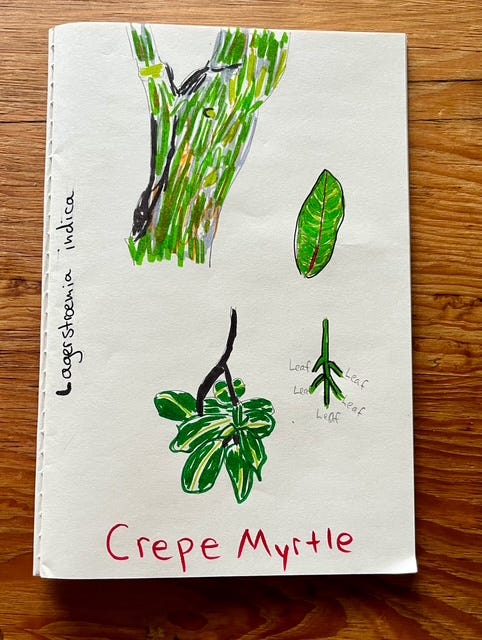 Lagerstroemia indica
Leaf
Leaf
Leaf
Leaf
Leaf
Crepe Myrtle